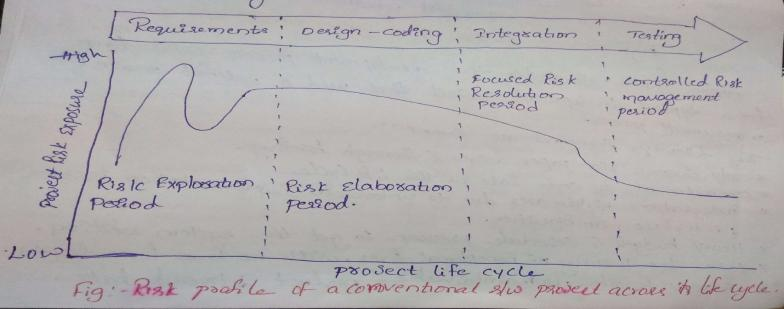 Requirements
Design-coding
Integration
Testing
High
Project Risk Exposure
Low
Risk Exploration
Period
Risk Elaboration
Period.
Focused Risk
Resolution
Period
Controlled Risk
management
period
project life cycle
Fig:- Risk profile of a conventional s/w project across its life cycle.